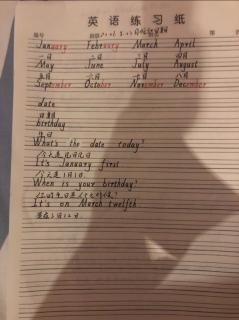 英语练习纸
January February March April
一月 二月 三月 四月
May June July August
五月 六月 七月 八月
September October November December
date
日期
birthday
生日
What's the date today?
今天是几月几日
It's January first
今天是1月1日.
When is your birthday?
It's on March twelfth